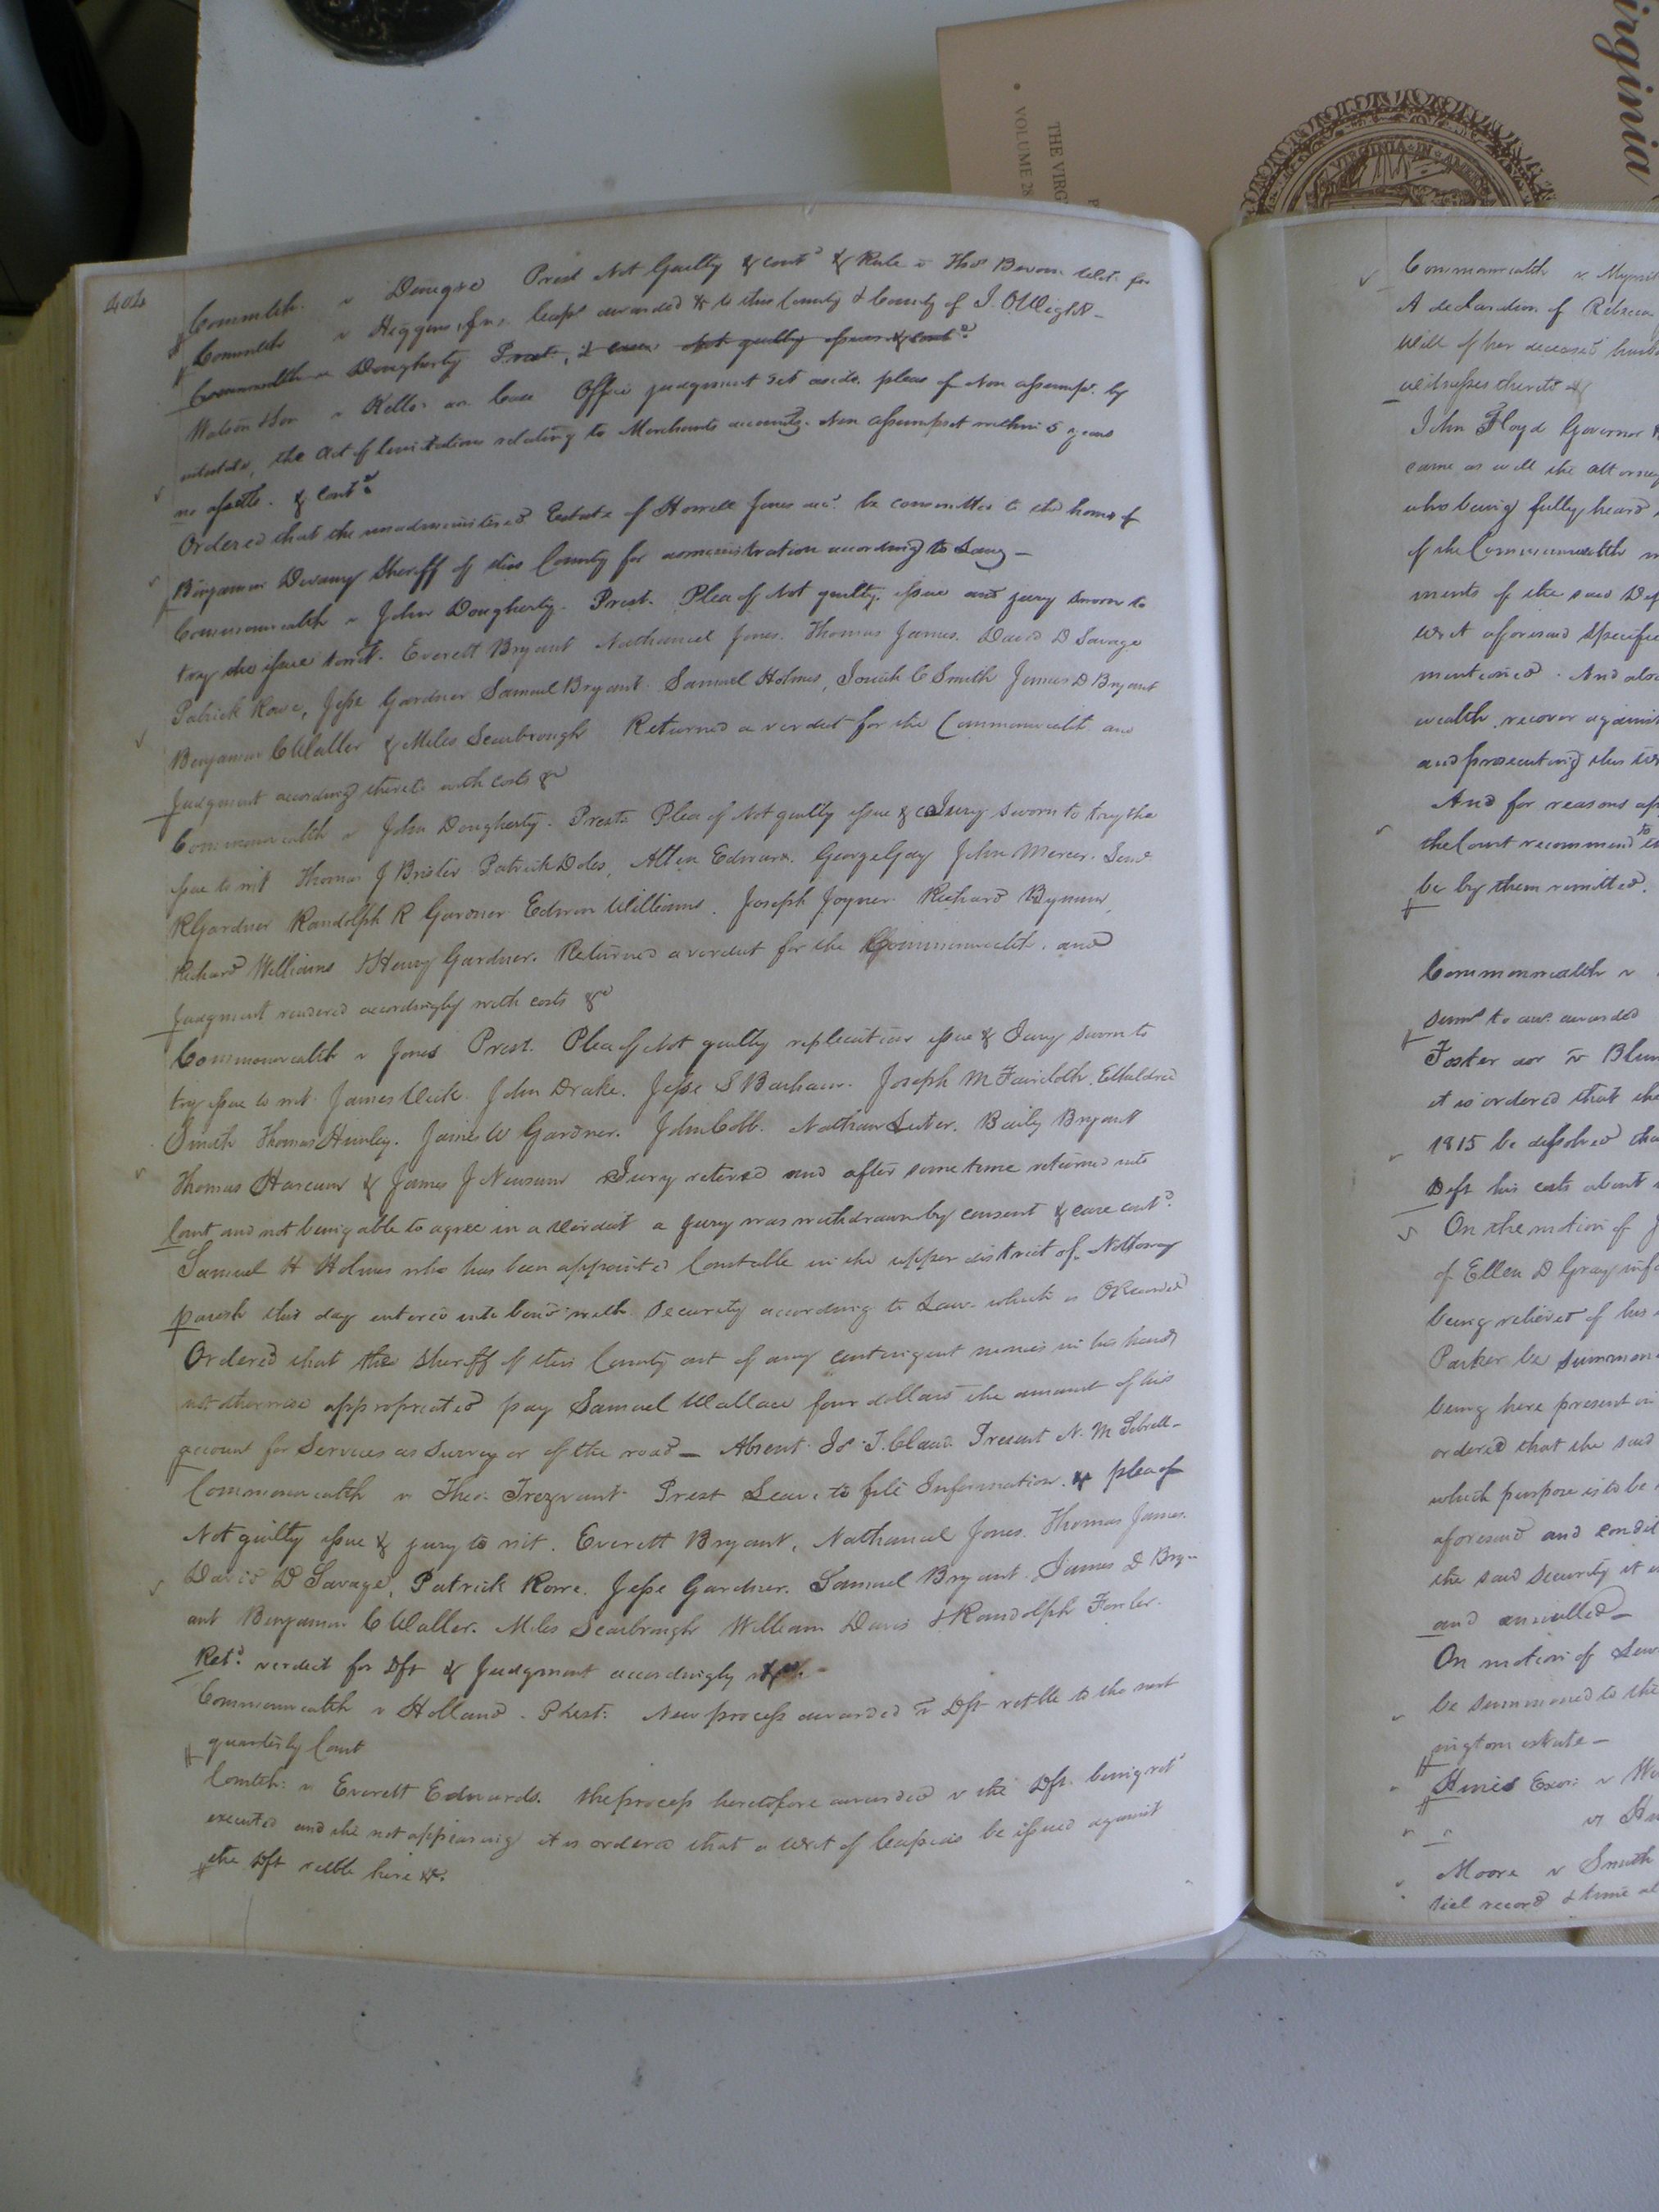 irginia
THE VIRG
VOLUME 28
VIRGINIA IN AMER
404
Commlth. v Donegre Prest Not Guilty & contd & Rule v Thos witt. for
Commlth v Higgins, Jur. Caps awarded & to this County & County of I. O. Wight
Commonwealth v Dougherty Prest, 2 cases Not guilty issue & contd
Watson & Son v Kello on Case Office judgment set aside. pleas of Non assumpt. by
intestate, the Act of limitations relating to Merchants accounts. Non assumpsit within 5 years
no assetts. & Contd
Ordered that the unadministered Estate of Howell Jones decd. be committed to the hands of
Benjamin Devany Sheriff of this County for administration according to Law
Commonwealth v John Dougherty. Prest. Plea of Not guilty. issue and jury sworn to
try the issue towit. Everett Bryant Nathaniel Jones. Thomas James. David D Savage
Patrick Rowe, Jesse Gardner Samuel Bryant. Samuel Holmes, Josiah C Smith James D Bryant
Benjamin C Waller & Miles Scarbrough Returned a verdict for the Commonwealth and
Judgment according thereto with costs &c
Commonwealth v John Dougherty. Prest. Plea of Not guilty issue & Jury sworn to try the
issue to wit Thomas J Brister Patrick Doles, Allen Edwards. George Gay John Mercer.
R Gardner Randolph R Gardner Edwin Williams. Joseph Joyner Richard Bynum,
Richard Williams & Henry Gardner. Returned a verdict for the Commonwealth. and
Judgment rendered accordingly with costs &c
Commonwealth v Jones Prest. Plea of Not guilty replication issue & Jury sworn to
try issue to wit James Vick. John Drake. Jesse S Barham. Joseph M Faircloth. Etheldred
Smith Thomas Hunley. James W Gardner. John Cobb. Nathan Luter. Baily Bryant
Thomas Harcum & James J Newsum Jury retired and after some time returned into
Court and not being able to agree in a Verdict a Jury was withdrawn by consent & case contd.
Samuel H Holmes who has been appointed Constable in the upper district of Nottoway
parish this day entered into bond with Security according to Law which is ORecorded
Ordered that the Sheriff of this County out of any contingent monies in his hands
not otherwise appropriated pay Samuel Wallace four dollars the amount of his
account for Services as Surveyor of the road — Absent Js. T. Claud Present N. M Sebrell
Commonwealth v Theo. Trezvant Prest Leave to file Information. & plea of
Not guilty issue & jury to wit. Everett Bryant, Nathaniel Jones. Thomas James.
David D Savage, Patrick Rowe. Jesse Gardner. Samuel Bryant. James D Bry-
ant Benjamin C Waller. Miles Scarbrough William Davis & Randolph Fowler.
Retd. verdict for Dft & Judgment accordingly
Commonwealth v Holland. Prest. New process awarded v Dft retble to the next
quarterly Court
Comlth: v Everett Edwards. the process heretofore awarded v the Dft. being retd
executed and he not appearing it is ordered that a writ of Capias be issued against
the Dft retble here &c.
Commonwealth v
A declaration of Rebecca
Will of her deceased husb
witnesses thereto &c
John Floyd Governor
came as well the attorney
who being fully heard
of the Commonwealth
ments of the said Def
writ aforesaid specifie
mentioned. And also
wealth recover against
and prosecuting this wr
And for reasons ap
the Court recommend to
be by them remitted.
Commonwealth v
to awarded
Foster v Blun
it is ordered that the
1815 be dissolved tha
Deft his costs about
On the motion of J
of Ellen D Gray inf
being relieved of his
Parker be summon
being here present in
ordered that the said
which purpose is to be
aforesaid and condit
the said security it
and annulled —
On motion of
be summoned to the
ington estate —
Hines Exor: v
v
Moore v Smith
tiel record & time